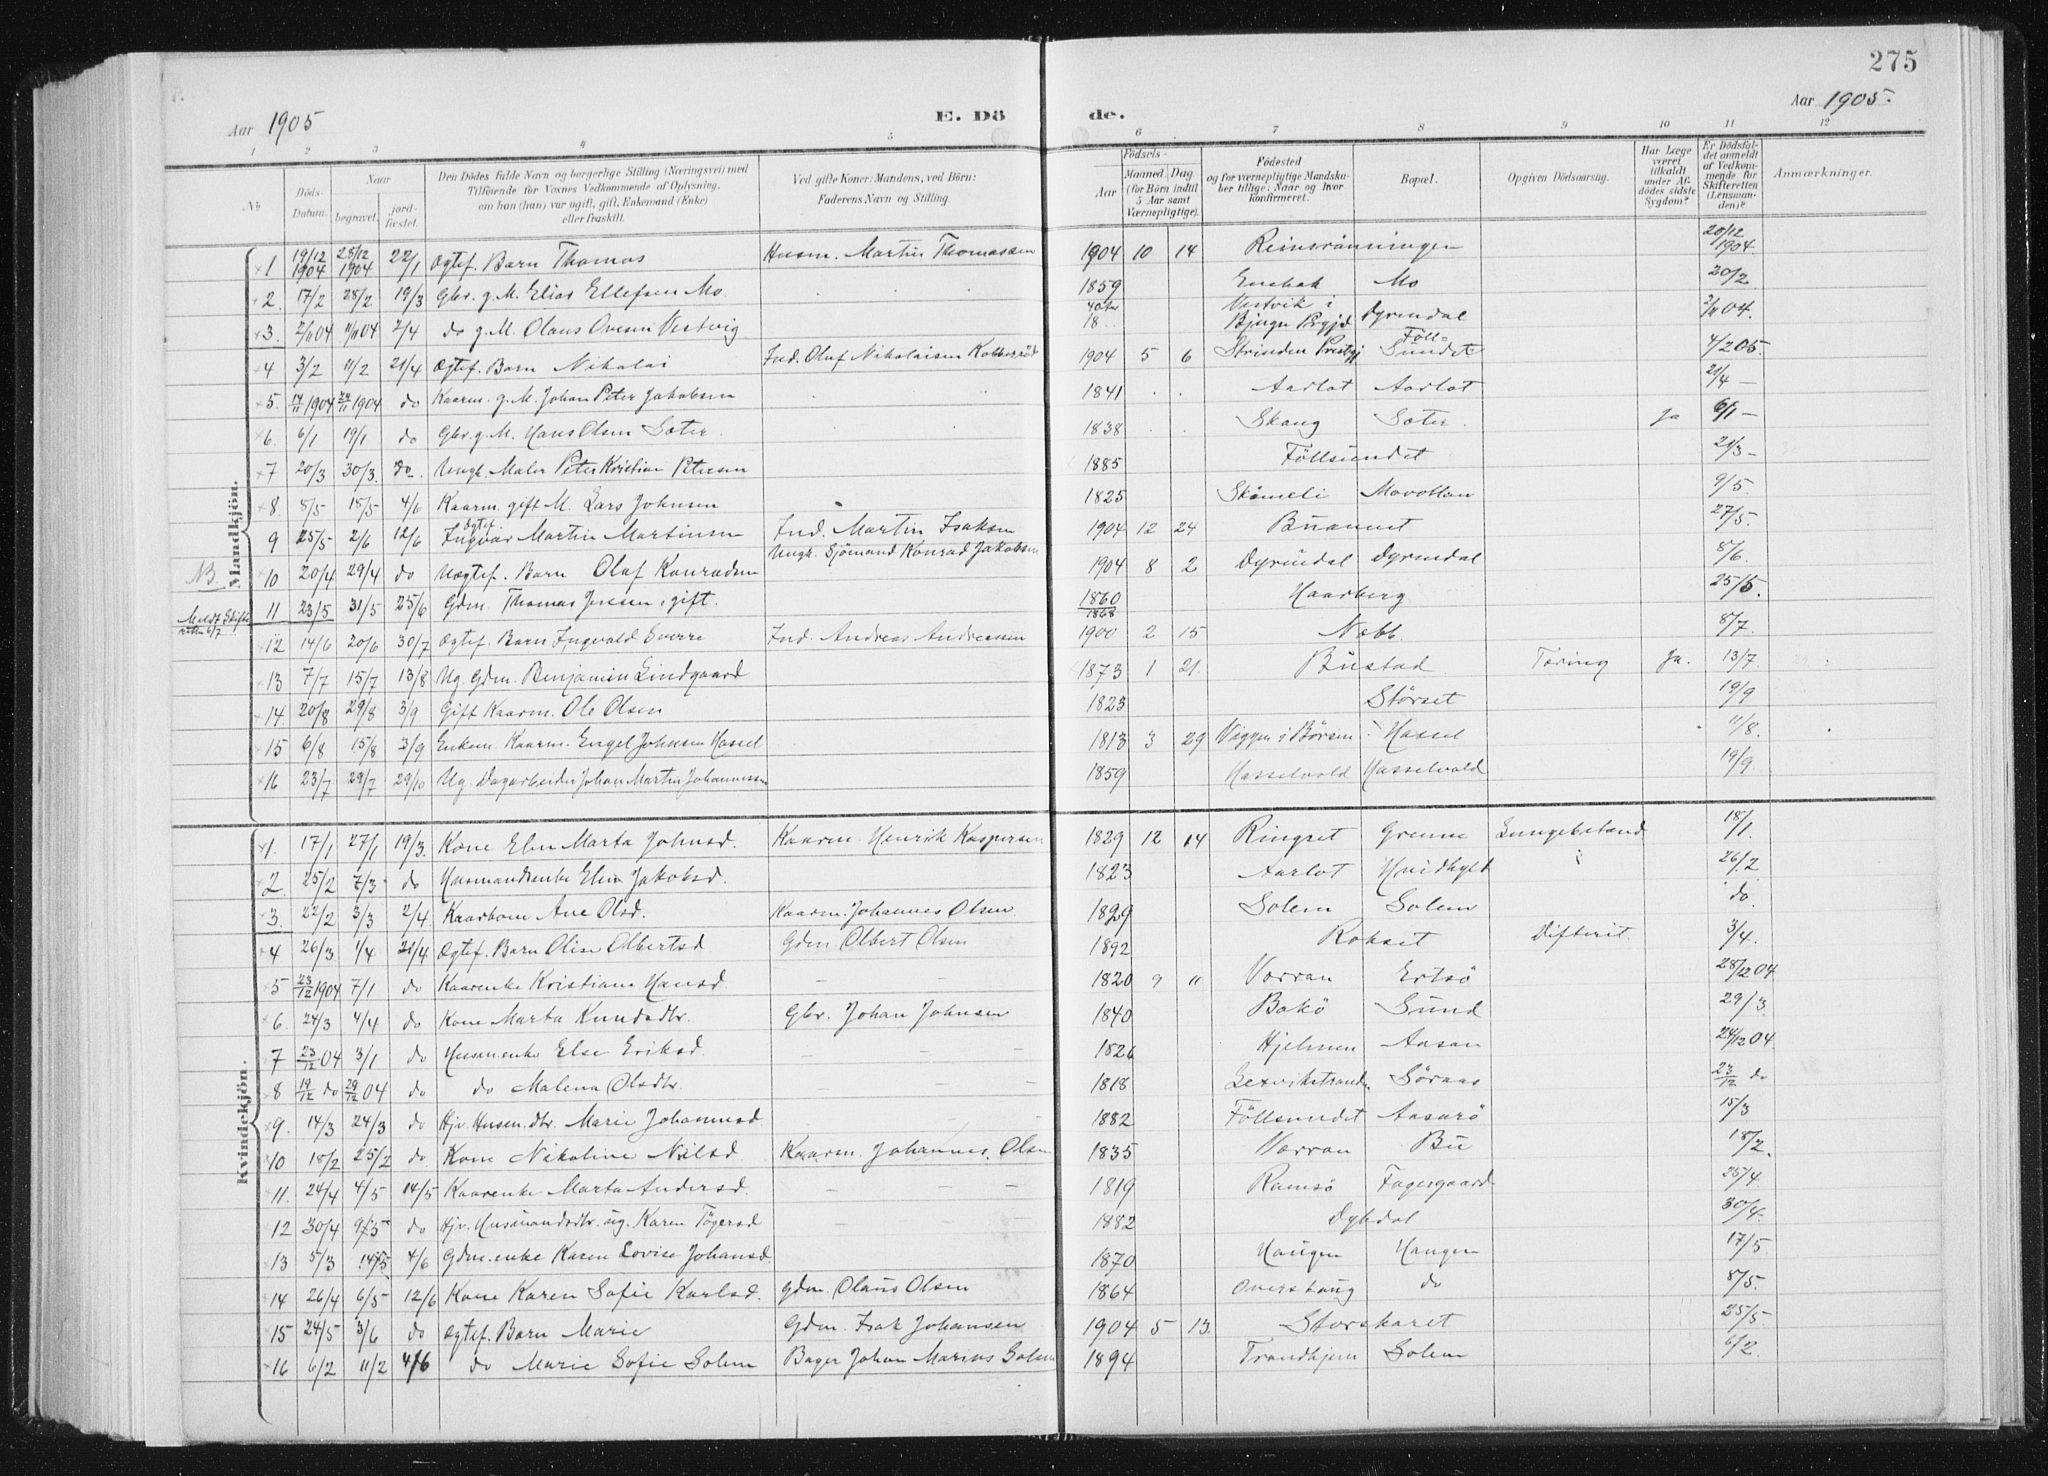 275
Aar 1905
E. Dö
de.
Aar 1905.
1 2 3 4 5 6 7 8 9 10 11 12
No.
Döds-Datum.
Naar
begravet.
jord-fæstet.
Den Dödes fulde Navn og borgerlige Stilling (Næringsvei) med
Tilföiende för Voxnes Vedkommende af Oplysning,
om han (hun) var ugift, gift, Enkemand (Enke)
eller fraskilt.
Ved gifte Koner: Mandens, ved Börn:
Faderens Navn og Stilling.
Födsels-
Aar
Maaned Dag
(for Börn indtil
5 Aar samt
Værnepligtige).
Födested
og for værnepligtige Mandska-
ber tillige: Naar og hvor
konfirmeret.
Bopæl.
Opgiven Dödsaarsag.
Har Læge
været
tilkaldt
under Af-
dödes sidste
Sygdom?
Er Dödsfal-
det anmeldt
af Vedkom-
mende for
Skifteretten
(Lensman-
den)?
Anmærkninger.
Mandkjön.
1 19/12 1904 28/12 1904 22/1 Ægtef. Barn Thomas Husm. Martin Thomassen 1904 10 14 Reinsrönningen 20/12 1904.
2. 17/2 28/2 19/3 Gbr. g. M. Elias Ellefsen Mo. 1859 Mo 20/2
3. 2/11 04 11/11 04 2/4 do g. M. Olaus Ovesen Vestvig 18.. Vestvik i Bjugn Prgjd Dyrendal 2/11 04.
4 3/2 11/2 21/4 Ægtef. Barn Nikolai Ind. Oluf Nikolaisen 1904 5 6 Strinden Prestgj Föll-sundet 4/2 05.
5. 14/11 1904 24/11 1904 do Kaarm. g. M. Johan Peter Jakobsen 1841 Aarlot Aarlot 21/4 —
6. 6/1 19/1 do Gbr. g. M. Hans Olsen Sæter. 1838 Skaug Sæter. Ja 6/1 —
7 20/3 30/3. do Ungk. Maler Peter Kristian Petersen 1885 Föllsundet 21/3 —
8. 8/5 15/5 4/6 Kaarm. gift M. Lars Johnsen 1825 9/5.
9 25/5 2/6 12/6 Ægtef. Ingvar Martin Martinsen Ind. Martin Isaksen 1904 12 24 27/5.
NB 10 20/4 29/4 do Uægtef. Barn Oluf Konradsen Ungk. Sjömand Konrad Jakobsen 1904 8 2 Dyrendal Dyrendal 8/6.
Meldt Skifteretten 6/7 11 23/5 31/5 25/6 Gdm. Thomas Jensen, gift. 1860 1868 Haarberg 25/5.
12 14/6 20/6 30/7 Ægtef. Barn Ingvald Sverre Ind. Andreas Andreassen 1900 2 15 Næbb. 8/7.
13 7/7 15/7 13/8 Ug. Gdm. Benjamin Lindgaard 1873 1 21. Bustad Tæring Ja. 13/7
14. 20/8 29/8 3/9 Gift Kaarm. Ole Olsen 1823 Störset 19/9
15 6/8 15/8 3/9 Enkem. Kaarm. Engel Johnsen Hassel 1813 3 29 Viggen i Börsen Hassel 11/8.
16 23/7 29/7 29/10 Ug. Dagarbeider Johan Martin Johannessen 1859 Hasselvold Hasselvold 19/9.
Kvindekjön.
1. 17/1 27/1 19/3. Kone Elen Marta Johnsd. Kaarm. Henrik Kaspersen 1829 12 14 Ringset Grenne Lungebetænd. 18/1.
2. 25/2 7/3 do Husmandsenke Elen Jakobsd. 1823 Aarlot Hvidbylt 26/2
3. 22/2 3/3 2/4 Kaarkone Ane Olsd. Kaarm. Johannes Olsen 1829 Solem Solem do.
4 26/3 1/4 21/4 Ægtef. Barn Oline Olbertsd Gdm Olbert Olsen 1892 Rokset Difterit. 3/4.
5 23/12 1904 7/1 do Kaarenke Kristiane Hansd — — 1820 9 11 Vorran Ertsö 28/12 04
6. 24/3 4/4 do Kone Marta Knudsdtr. Gbr. Johan Johnsen 1840 Bakö Sund 29/3
7 23/12 04 3/1 do Husm.enke Else Eriksd. — — — 1826 Hjelmen Aasan 24/12 04.
8 19/12 do 29/12 04 do do Malena Olsdtr. — — — 1818 Lexvikstranden Söraas 23/12 do
9. 14/3 24/3 do Hjv. Husm.dtr. Marie Johannesd — — — 1882 Föllsundet Aasarö 15/3
10 18/2 25/2 do Kone Nikoline Nilsd. Kaarm. Johannes Olsen 1835 Vorran Bu 18/2.
11. 24/4 4/5 14/5 Kaarenke Marta Andersd. — — — 1819 Ramsö Fagergaard 25/4
12 30/4 9/5 do Hjv. Husmandsdtr. ug. Karen Tögersd — — — 1882 Dybdal 30/4.
13 5/3 14/5. 4/6 Gdm.enke Karen Lovise Johansd. 1870 Haugen Haugen 17/5
14 26/4 6/5 12/6 Kone Karen Sofie Karlsd. Gdm. Olaus Olsen 1864 Overskaug do 8/5.
15 24/5 3/6 do Ægtef. Barn Marie Gdm. Isak Johansen 1904 5 13. Storskaret 25/5
16 6/2 11/2 4/6 do Marie Sofie Solem Bager Johan Marius Solem 1894 Trondhjem Solem 6/2.